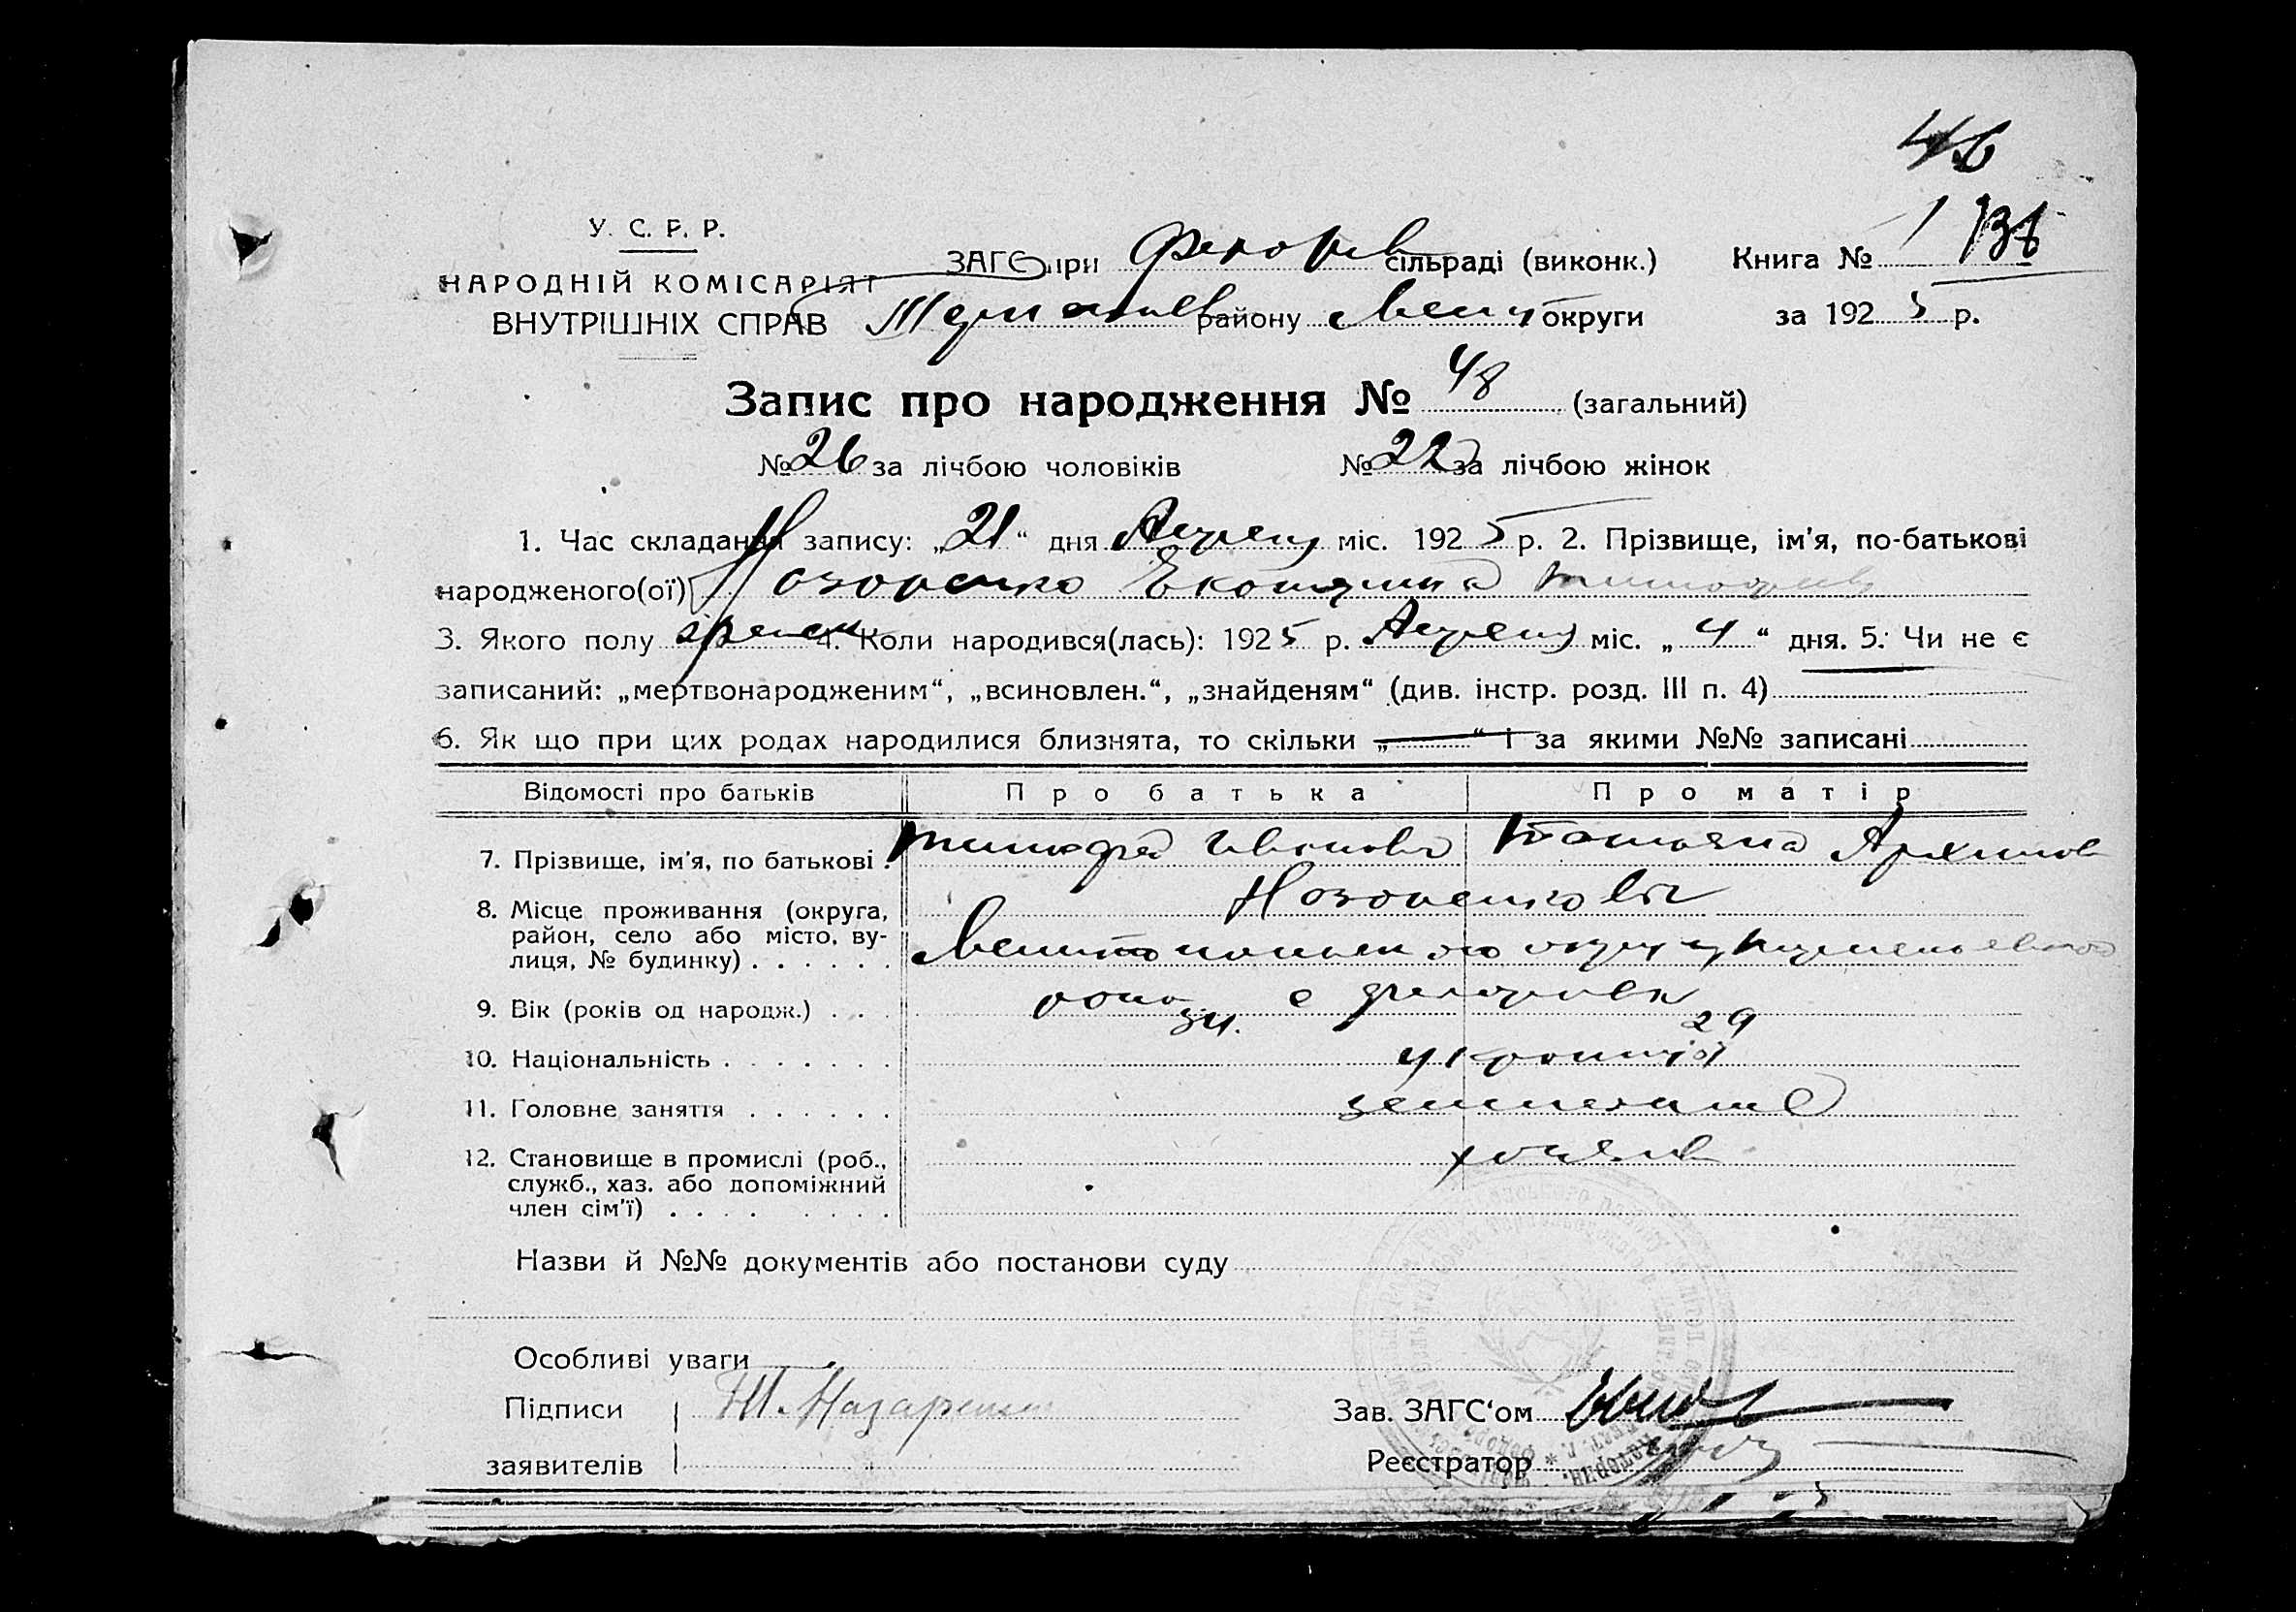 46
У. С. Р. Р.
НАРОДНІЙ КОМІСАРІЯТ
ВНУТРІШНІХ СПРАВ
ЗАГС при Федорів сільраді (виконк.) Книга № 1 136
району Меліт округи за 1925 р.
Запис про народження № 48 (загальний)
№ 26 за лічбою чоловіків № 22 за лічбою жінок
1. Час складання запису: „21“ дня Апреля міс. 1925 р. 2. Прізвище, ім’я, по-батькові
народженого(ої) Назаренко Екатерина Тимофеев
3. Якого полу женск 4. Коли народився(лась): 1925 р. Апреля міс. „4“ дня. 5. Чи не є
записаний: „мертвонародженим“, „всиновлен.“, „знайденям“ (див. інстр. розд. III п. 4)
6. Як що при цих родах народилися близнята, то скільки „ “ і за якими №№ записані
Відомості про батьків Про батька Про матір
7. Прізвище, ім’я, по батькові . Тимофей Иванович Татьяна Архипов
Назаренков
8. Місце проживання (округа,
район, село або місто, ву-
лиця, № будинку) . . . . . . Мелитопольского округа
9. Вік (років од народж.) . . . району с Федоровк
34. 29
10. Національність . . . . . . .
11. Головне заняття . . . . . .
12. Становище в промислі (роб.,
служб., хаз. або допоміжний
член сім’ї) . . . . . . . .
хозяев
Назви й №№ документів або постанови суду
Особливі уваги
Підписи Т. Назаренко Зав. ЗАГС‘ом
заявителів Реєстратор